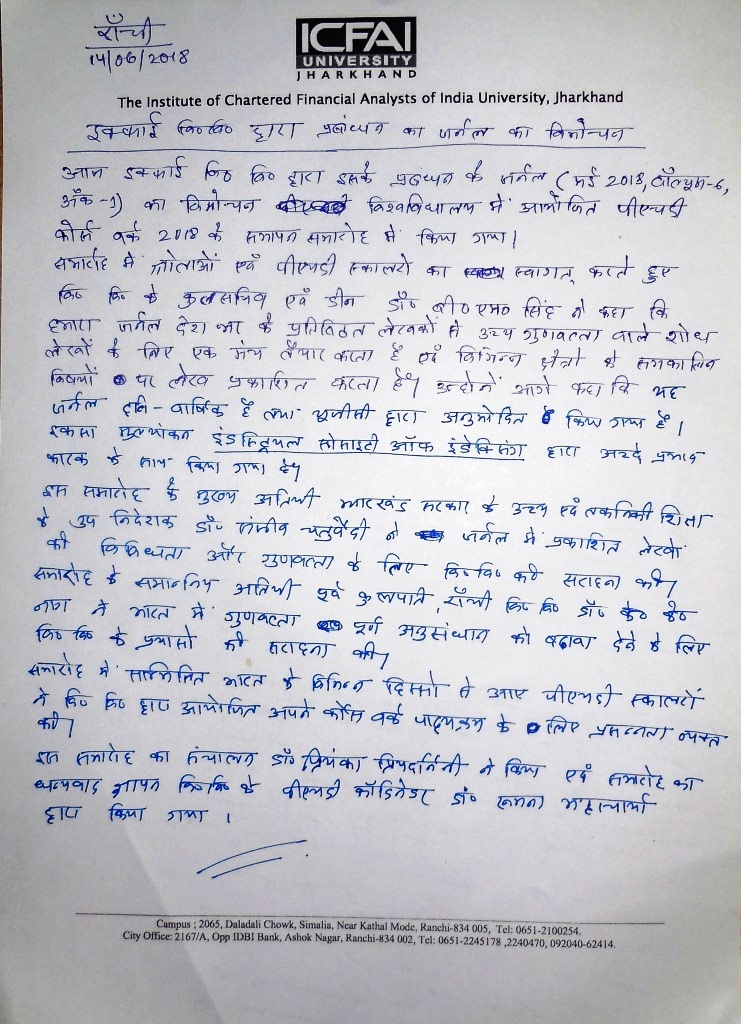 राँची
14/06/2018
ICFAI
UNIVERSITY
JHARKHAND
The Institute of Chartered Financial Analysts of India University, Jharkhand
इक्फाई वि० वि० द्वारा प्रबंधन का जर्नल का विमोचन
आज इक्फाई वि० वि० द्वारा इसके प्रबंधन के जर्नल (मई 2018, वॉल्यूम-6,
अंक-1) का विमोचन विश्वविद्यालय में आयोजित पीएचडी
कोर्स वर्क 2018 के समापन समारोह में किया गया।
समारोह में श्रोताओं एवं पीएचडी स्कालरों का स्वागत् करते हुए
वि० वि० के कुलसचिव एवं डीन डॉ० बी० एम० सिंह ने कहा कि
हमारा जर्नल देश भर के प्रतिष्ठित लेखकों से उच्च गुणवत्ता वाले शोध
लेखों के लिए एक मंच तैयार करता है एवं विभिन्न क्षेत्रों के समकालिन
विषयों पर लेख प्रकाशित करता है। उन्होंने आगे कहा कि यह
जर्नल द्वि-वार्षिक है तथा यूजीसी द्वारा अनुमोदित किया गया है।
इसका मूल्यांकन इंडस्ट्रियल सोसाइटी ऑफ इंडेक्सिंग द्वारा अच्छे प्रभाव
कारक के साथ किया गया है।
इस समारोह के मुख्य अतिथी झारखंड सरकार के उच्च एवं तकनिकी शिक्षा
के उप निदेशक डॉ० संजीव चतुर्वेदी ने जर्नल में प्रकाशित लेखों
की विविधता और गुणवत्ता के लिए वि० वि० की सराहना की।
समारोह के सम्मानिय अतिथी पूर्व कुलपति, राँची वि० वि० डॉ० के० के०
नाग ने भारत में गुणवत्ता पूर्ण अनुसंधान को बढ़ावा देने के लिए
वि० वि० के प्रयासों की सराहना की।
समारोह में सम्मिलित भारत के विभिन्न हिस्सों से आए पीएचडी स्कालरों
ने वि० वि० द्वारा आयोजित अपने कोर्स वर्क पाठ्यक्रम के लिए प्रसन्नता व्यक्त
की।
इस समारोह का संचालन डॉ० प्रियंका प्रियदर्शिनी ने किया एवं समारोह का
धन्यवाद ज्ञापन वि० वि० के पीएचडी कॉर्डिनेटर डॉ० भट्टाचार्या
द्वारा किया गया।
Campus ; 2065, Daladali Chowk, Simalia, Near Kathal Mode, Ranchi-834 005, Tel: 0651-2100254.
City Office: 2167/A, Opp IDBI Bank, Ashok Nagar, Ranchi-834 002, Tel: 0651-2245178 ,2240470, 092040-62414.